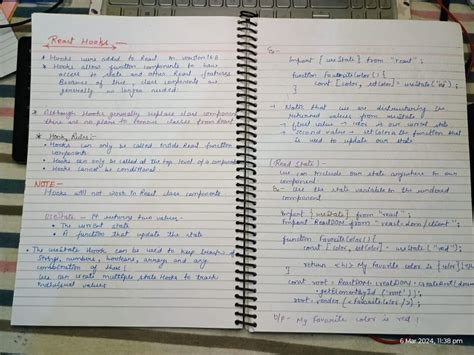 React Hooks :-
* Hooks were added to React in version 16.8
* Hooks allow function components to have
access to state and other React features.
Because of this, class components are
generally no longer needed.
* Although Hooks generally replace class components
there are no plans to remove classes from React
* Hook Rules :-
• Hooks can only be called inside React function
components.
• Hooks can only be called at the top level of a component
• Hooks cannot be conditional
NOTE -
Hooks will not work in React class components.
useState - It returns two values -
• The current state
• A function that updates the state
• The useState Hook can be used to keep track of
strings, numbers, booleans, arrays and any
combination of these!
We can create multiple state Hooks to track
individual values
Ex-
import { useState } from "react";
function FavoriteColor() {
const [color, setColor] = useState("red");
}
• Note that we are destructuring the
returned values from useState.
first value → color is our current state
second value → setColor is the function that
is used to update our state
(Read State) -
We can include our state anywhere in our
component
Ex - Use the state variable in the rendered
component
import { useState } from "react";
import ReactDOM from "react-dom/client";
function FavoriteColor() {
const [color, setColor] = useState("red");
return <h1> My favorite color is {color}
const root = ReactDOM.createRoot(document
.getElementById('root'));
root.render(<FavoriteColor />);
O/P - My favorite color is red!
6 Mar 2024, 11:38 pm